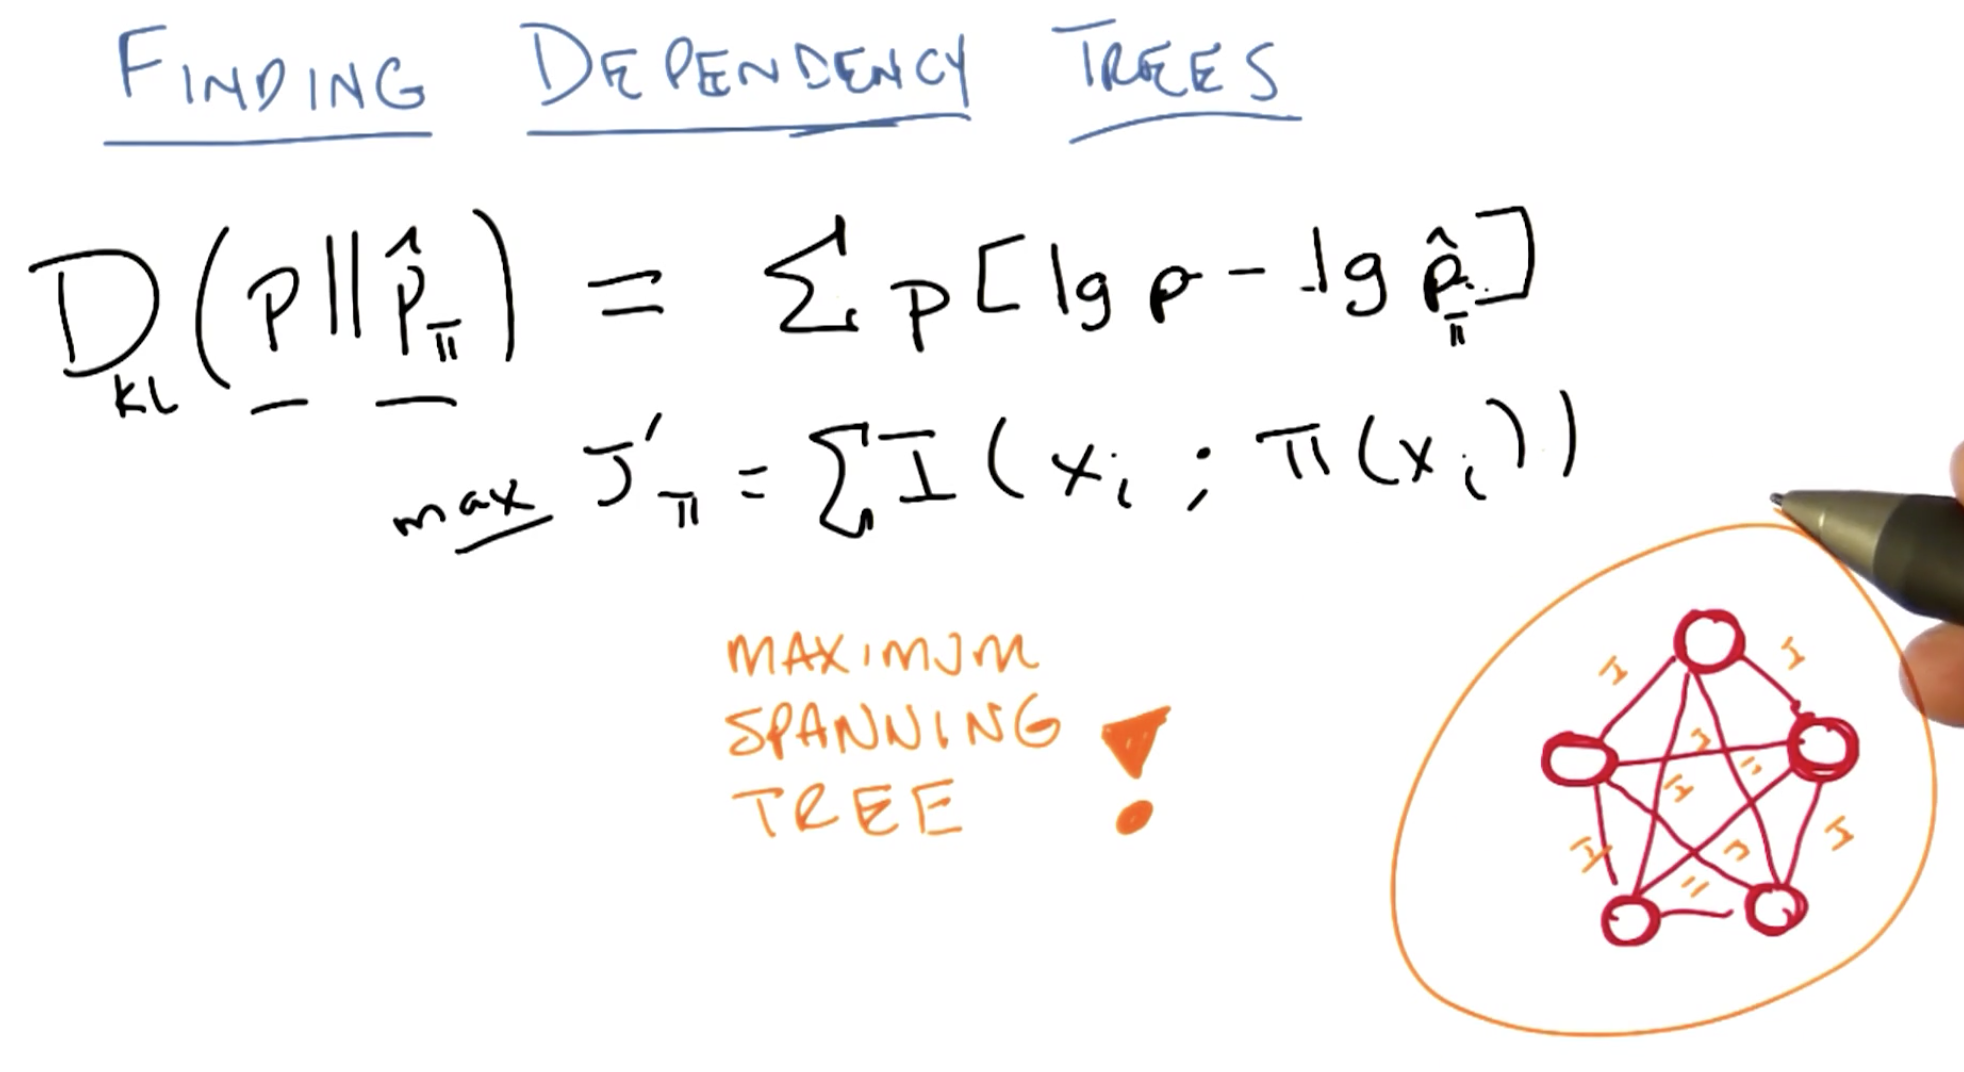 FINDING DEPENDENCY TREES
D_KL(p||p̂_π) = Σ p[lg p - lg p̂_π]
max J'_π = Σ I(x_i ; π(x_i))
MAXIMUM
SPANNING
TREE !
I I
I
I I
I I I